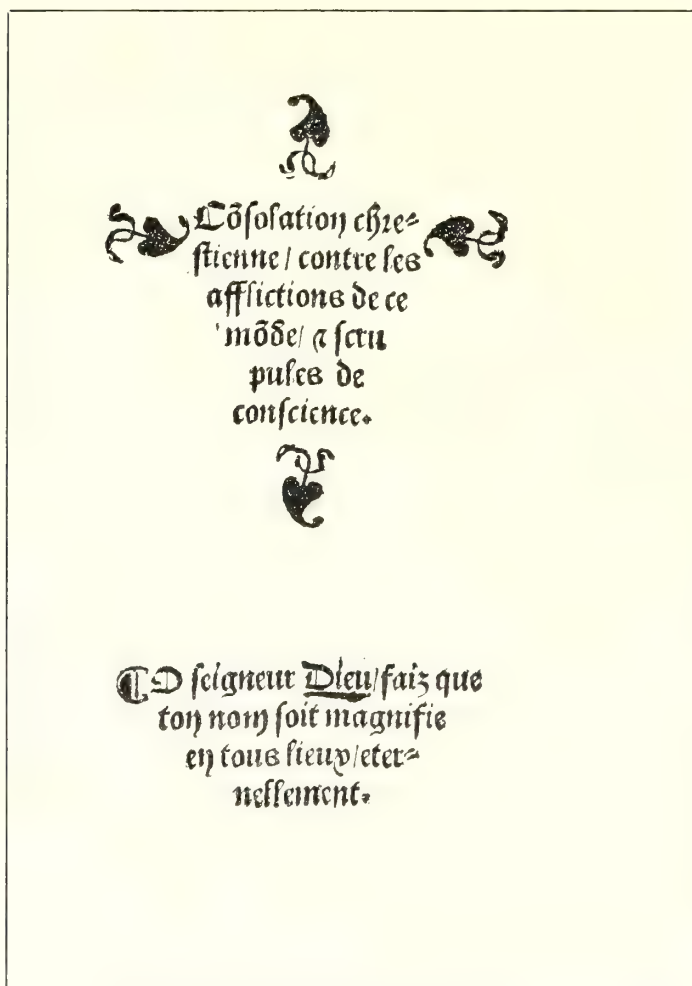 Cõſolation chre⸗
ſtienne / contre les
afflictions de ce
mõde / ⁊ ſcru
pules de
conſcience.
¶ O ſeigneur Dieu / faiz que
ton nom ſoit magnifie
en tous lieux / eter⸗
nellement.